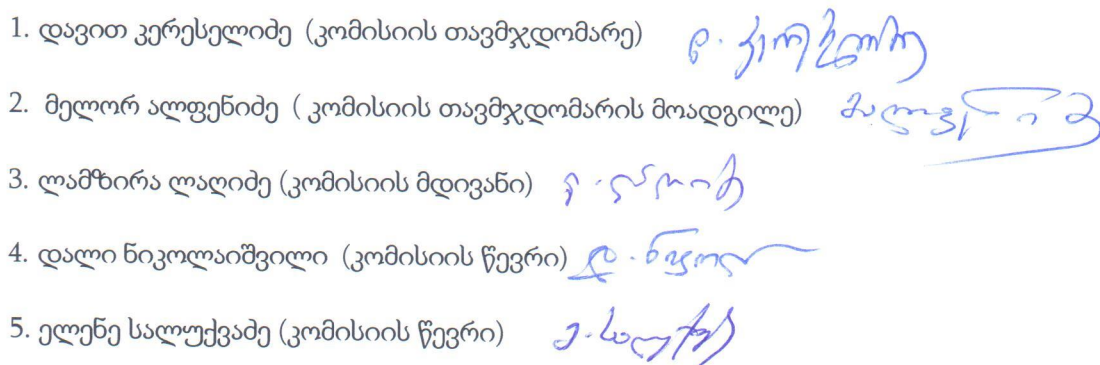 1. დავით კერესელიძე (კომისიის თავმჯდომარე)
2. მელორ ალფენიძე ( კომისიის თავმჯდომარის მოადგილე)
3. ლამზირა ლაღიძე (კომისიის მდივანი)
4. დალი ნიკოლაიშვილი (კომისიის წევრი)
5. ელენე სალუქვაძე (კომისიის წევრი)